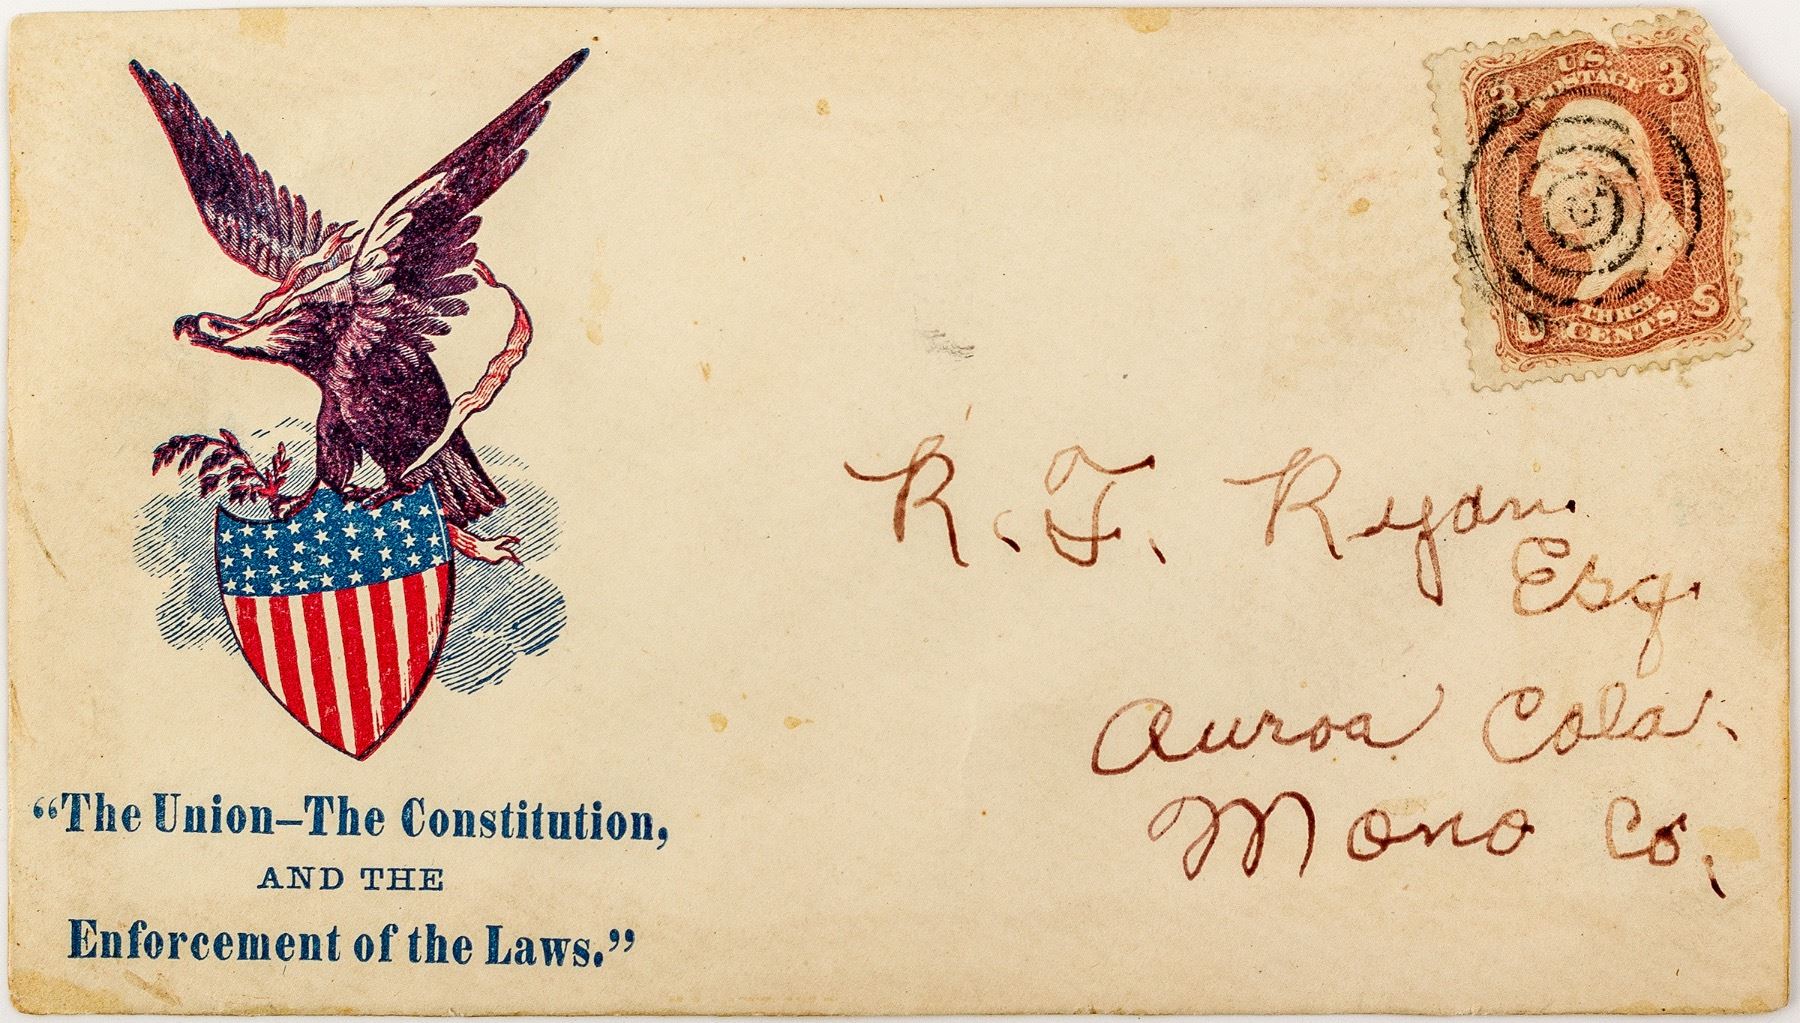 “The Union–The Constitution,
AND THE
Enforcement of the Laws.”
U.S.
POSTAGE
3 3
U S
THREE
CENTS
R. F. Ryan.
Esq.
Auroa Cala.
Mono Co.